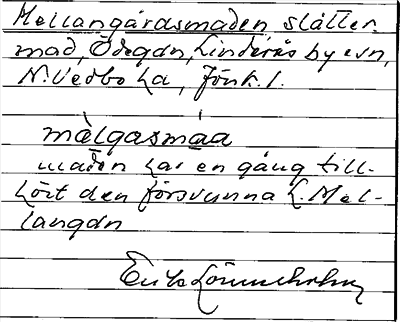 Mellangårdsmaden slåtter-
mad, Ödegdn, Linderås by esn,
N. Vedbo hd, Jönk. l.
mèlgasmáa
maden har en gång till-
hört den försvunna L. Mel-
langdn
Erik Lönnerholm